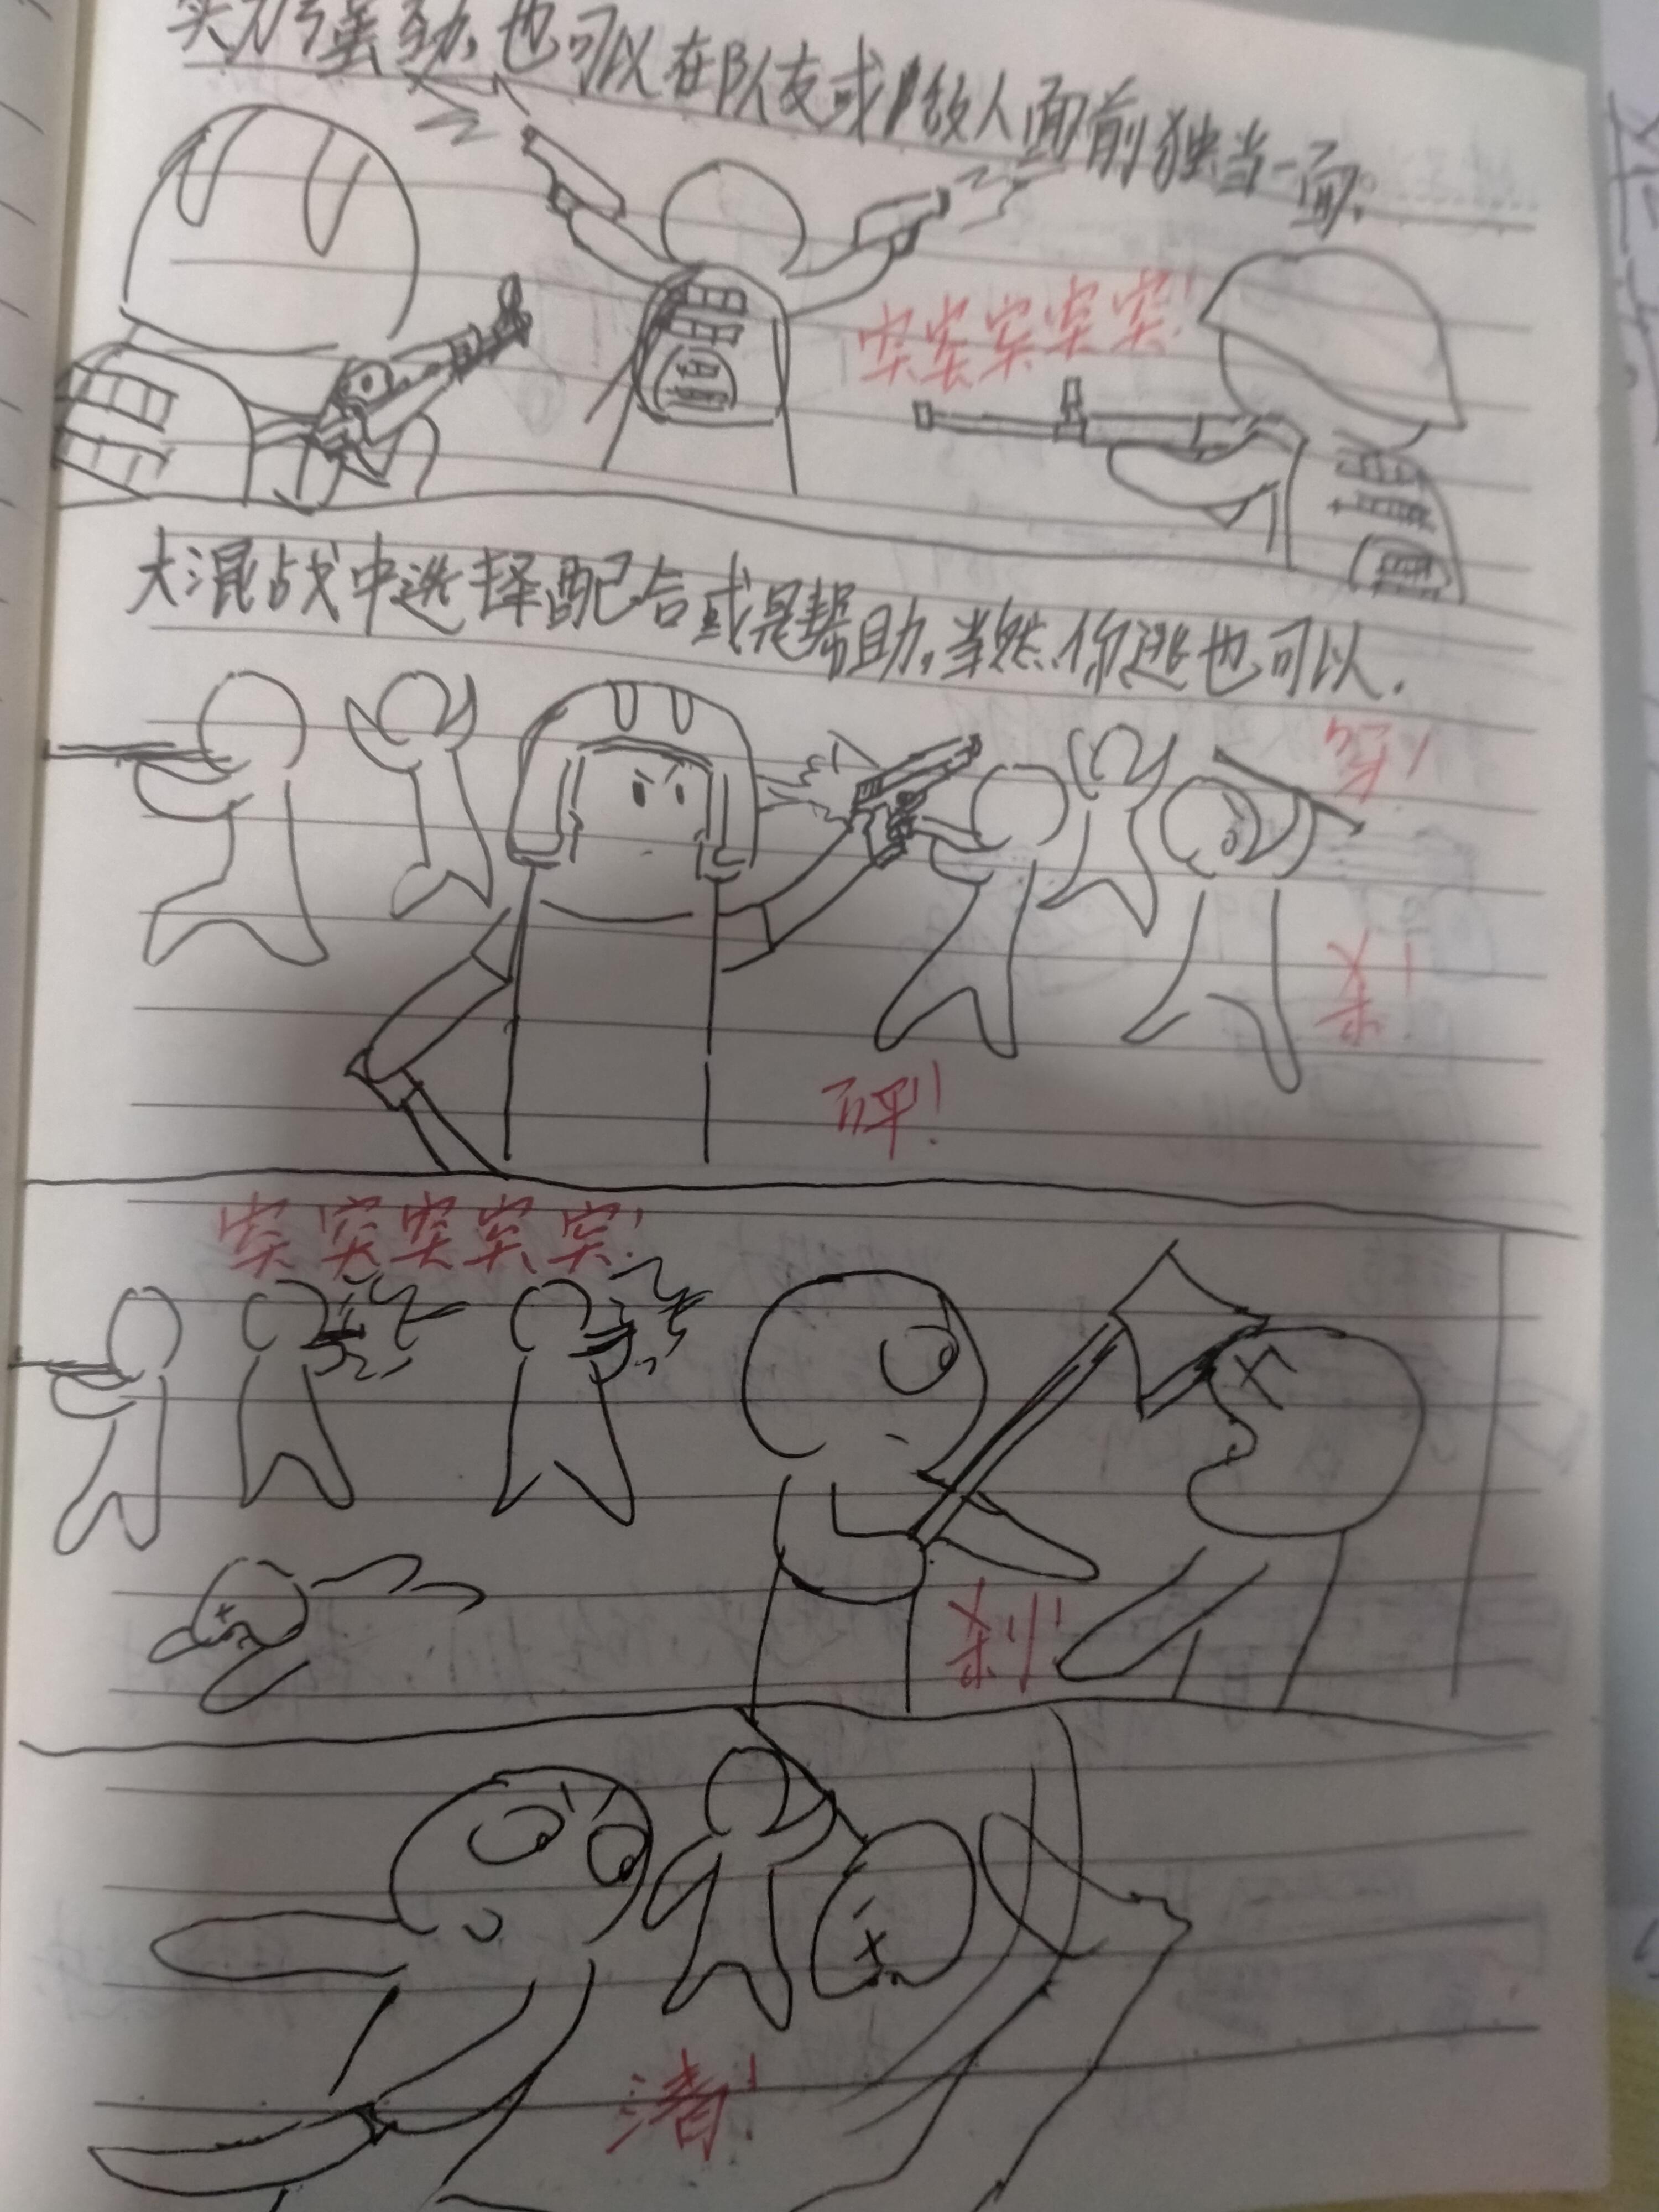 实力强劲,也可以在队友或敌人面前独当一面。
突突突突突!
大混战中选择配合或是帮助,当然,你逃也可以.
杀!
砰!
突突突突突!
刹!
渚!